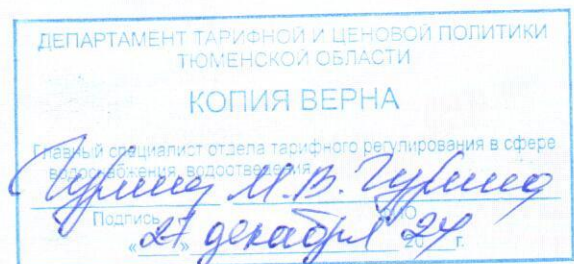 ДЕПАРТАМЕНТ ТАРИФНОЙ И ЦЕНОВОЙ ПОЛИТИКИ
ТЮМЕНСКОЙ ОБЛАСТИ
КОПИЯ ВЕРНА
Главный специалист отдела тарифного регулирования в сфере
водоснабжения, водоотведения
М.В.
Подпись ФИО
«27» декабря 2024 г.